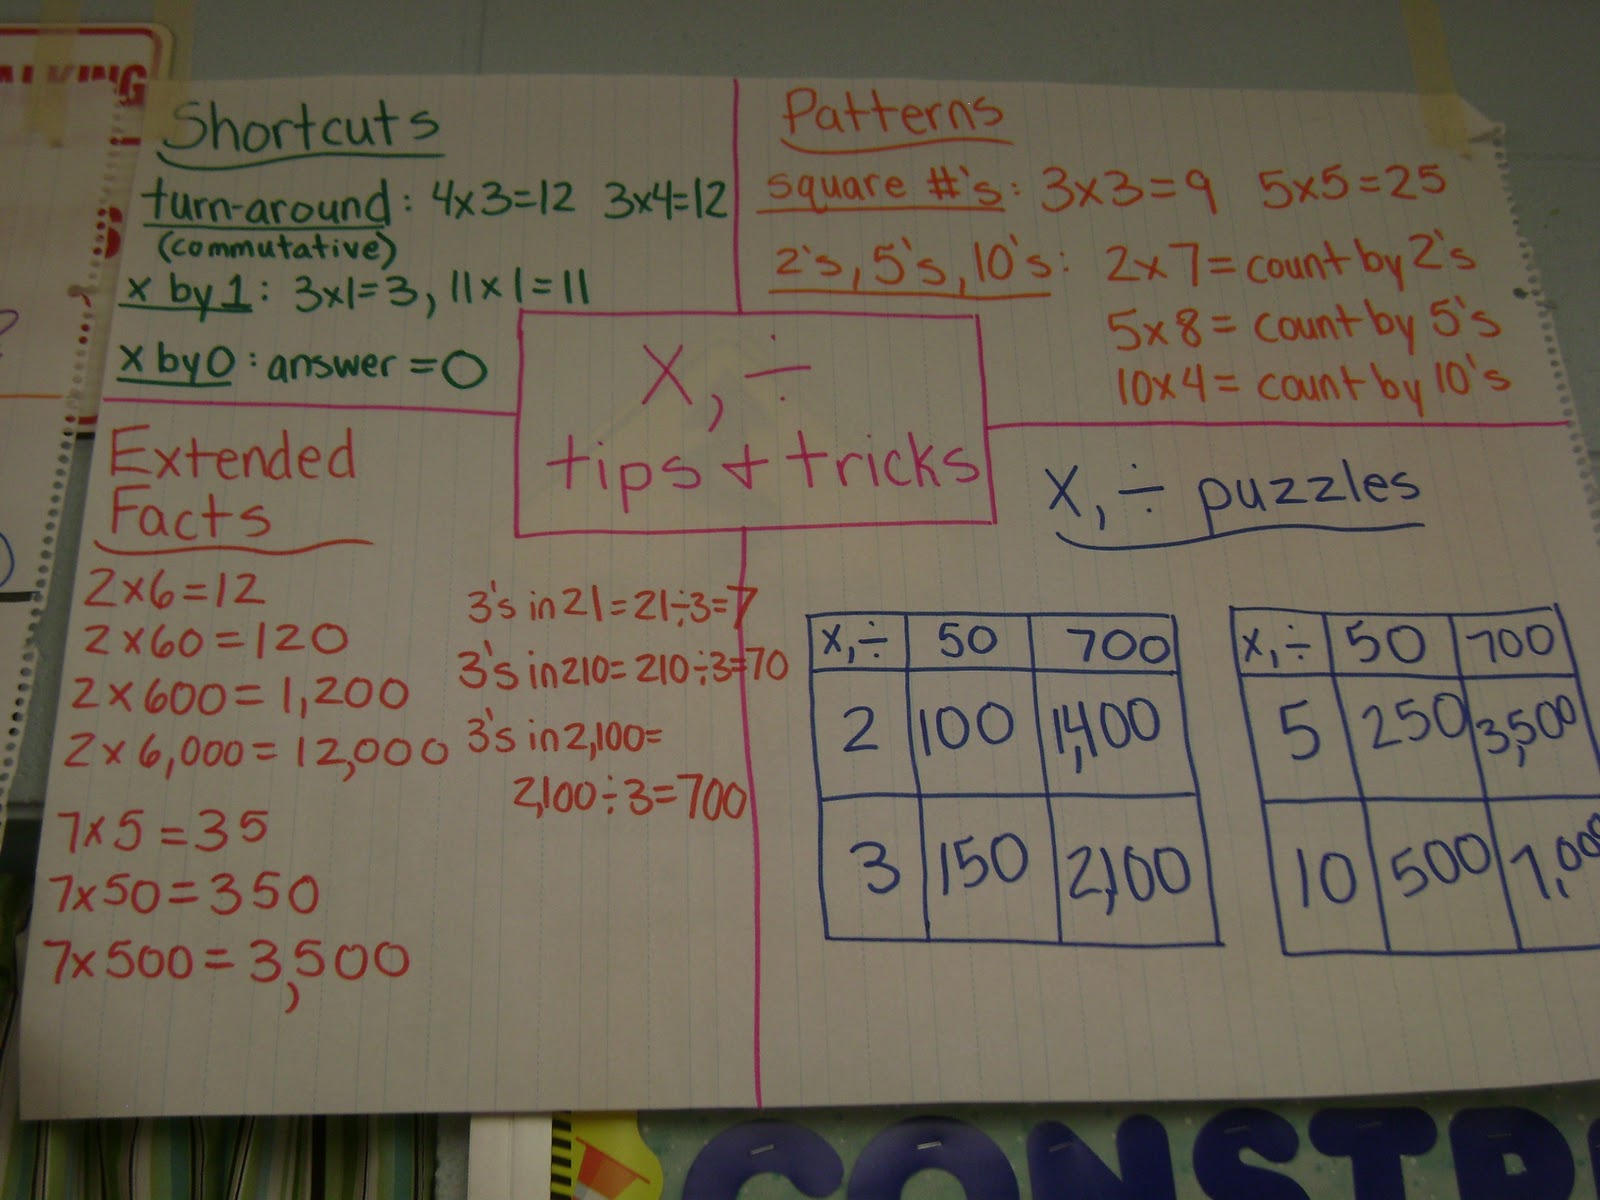 ALKING
Shortcuts
turn-around: 4x3=12 3x4=12
(commutative)
x by 1: 3x1=3, 11x1=11
x by 0: answer = 0
Patterns
square #'s: 3x3=9 5x5=25
2's, 5's, 10's: 2x7= count by 2's
5x8= count by 5's
10x4= count by 10's
x, ÷
tips + tricks
Extended
Facts
2x6=12
2x60=120
2x600=1,200
2x6,000=12,000
7x5=35
7x50=350
7x500=3,500
3's in 21=21÷3=7
3's in 210=210÷3=70
3's in 2,100=
2,100÷3=700
x, ÷ puzzles
x,÷ 50 700
2 100 1,400
3 150 2,100
x,÷ 50 700
5 250 3,500
10 500 7,000
CONSTR